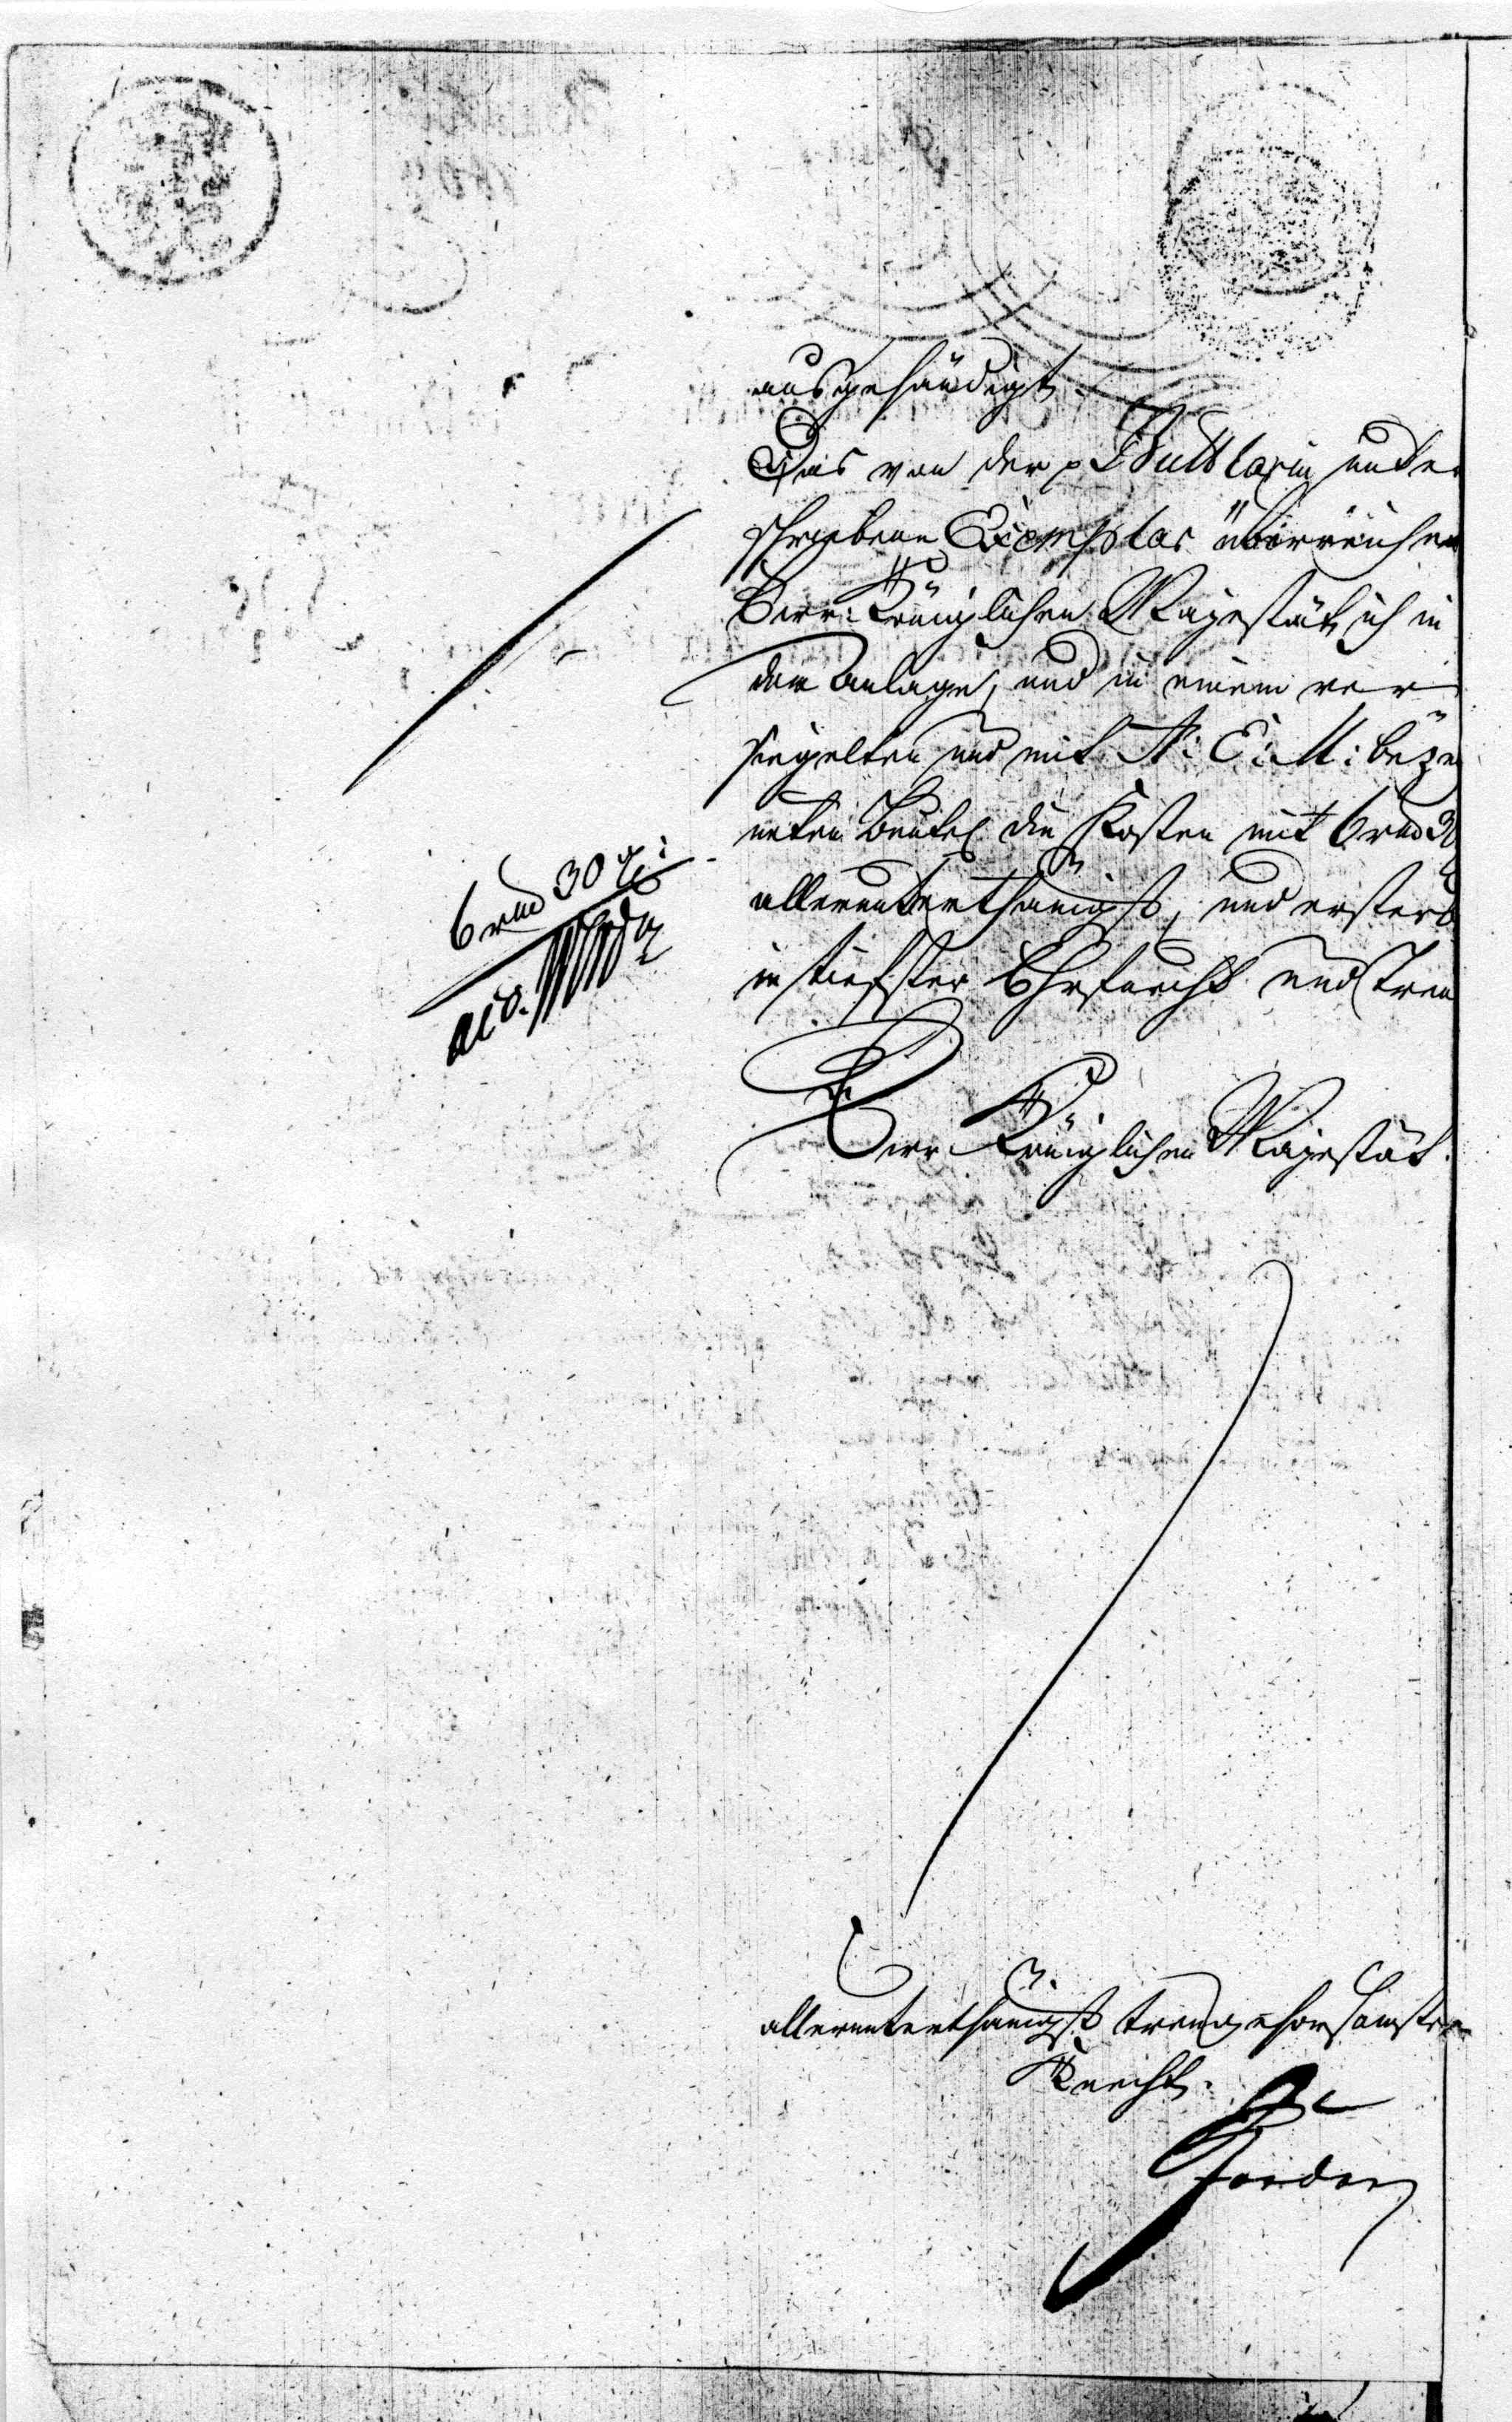 ausgehändigt.
Das von der p Buttlarin unter
schriebene Exemplar überreiche
Eurer Königlichen Majestät ich in
der Anlage, und in einem ver
siegelten und mit A: E: M: bezeich
neten Beutel die Kosten mit 6 rtl 30
allerunterthänigst, und ersterbe
in tiefster Ehrfurcht und Treu
6 rtl 30
Eurer Königlichen Majestät.
allerunterthänigst treugehorsamster
Knecht.